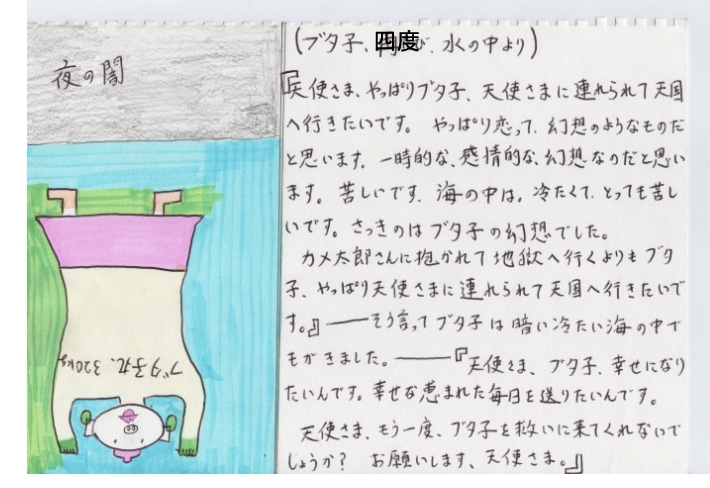 夜の闇
ブタ子丸、320kg
(ブタ子、四度、水の中より)
『天使さま、やっぱりブタ子、天使さまに連れられて天国
へ行きたいです。 やっぱり恋って、幻想のようなものだ
と思います。一時的な、感情的な、幻想なのだと思い
ます。苦しいです。海の中は、冷たくて、とっても苦し
いです。さっきのはブタ子の幻想でした。
カメ太郎さんに抱かれて地獄へ行くよりもブタ
子、やっぱり天使さまに連れられて天国へ行きたいで
す。』――そう言ってブタ子は暗い冷たい海の中で
もがきました。――『天使さま、ブタ子、幸せになり
たいんです。幸せな恵まれた毎日を送りたいんです。
天使さま、もう一度、ブタ子を救いに来てくれないで
しょうか? お願いします、天使さま。』